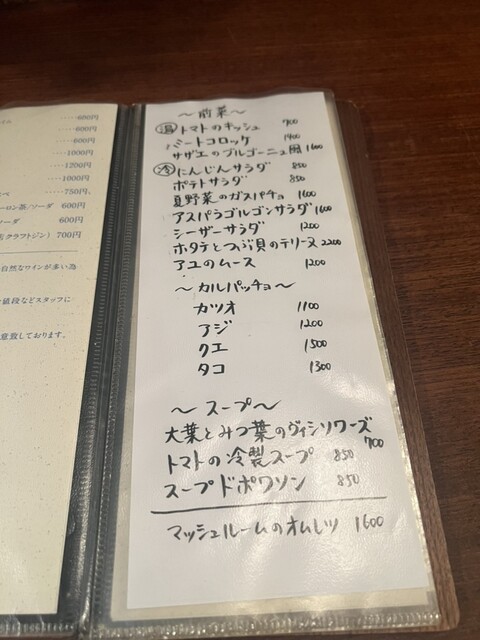 ‥‥600円
‥‥600円
‥‥600円
‥‥1000円
‥‥1200円
‥‥1000円
‥‥750円
ーロン茶/ソーダ 600円
ソーダ 600円
クラフトジン) 700円
自然なワインが多い為
値段などスタッフに
意致しております。
〜前菜〜
温 トマトのキッシュ 700
ミートコロッケ
サザエのブルゴーニュ風 1600
冷 にんじんサラダ 850
ポテトサラダ 850
夏野菜のガスパチョ 1600
アスパラゴルゴンサラダ 1600
シーザーサラダ 1200
ホタテとつぶ貝のテリーヌ 2200
アユのムース 1200
〜カルパッチョ〜
カツオ 1100
アジ 1200
クエ 1500
タコ 1300
〜スープ〜
大葉とみつ葉のヴィシソワーズ
700
トマトの冷製スープ 850
スープドポワソン 850
マッシュルームのオムレツ 1600